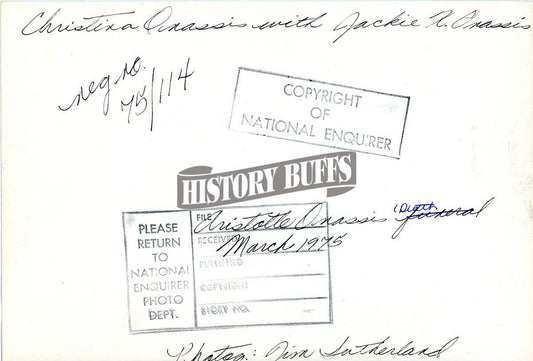 Christina Onassis with Jackie K. Onassis
neg no.
75/114
COPYRIGHT
OF
NATIONAL ENQUIRER
HISTORY BUFFS
PLEASE
RETURN
TO
NATIONAL
ENQUIRER
PHOTO
DEPT.
FILE Aristotle Onassis (Death funeral
RECEIVED March 1975
PUBLISHED
COPYRIGHT
STORY NO.
Photog: Jim Sutherland